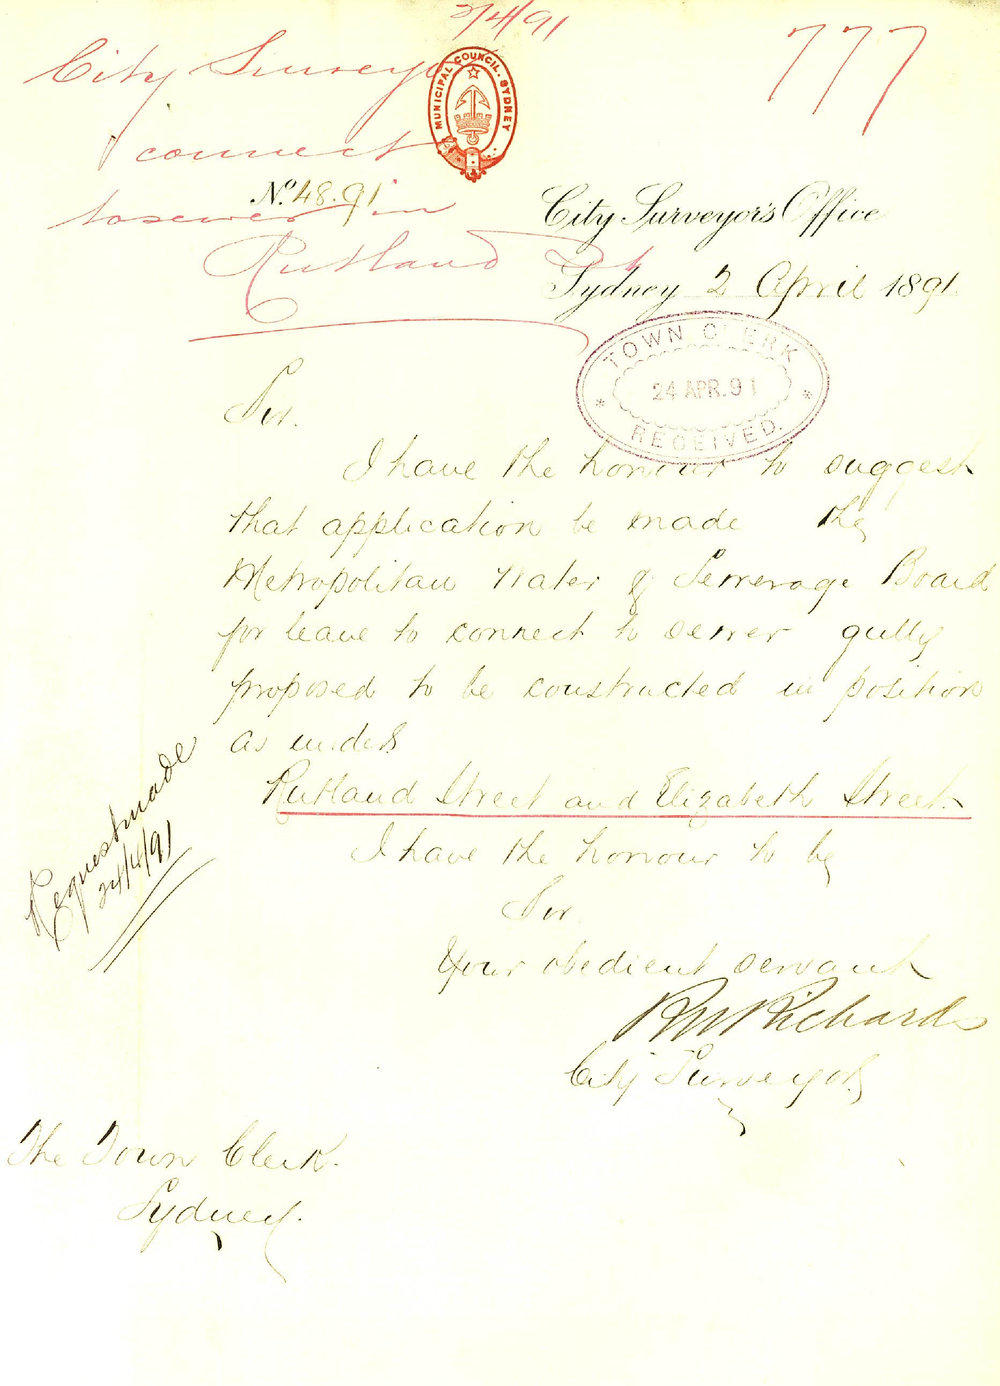 2/4/91
777
City Surveyor
connect
to sewer in
Rutland St
MUNICIPAL COUNCIL. SYDNEY
No. 48.91
City Surveyor's Office
Sydney 2 April 1891.
TOWN CLERK
24 APR. 91
RECEIVED.
Sir.
I have the honour to suggest
that application be made the
Metropolitan Water & Sewerage Board
for leave to connect to sewer gully
proposed to be constructed in position
as under
Rutland Street and Elizabeth Street.
I have the honour to be
Sir.
Your obedient servant
Richards
City Surveyor
Request made
24/4/91
The Town Clerk.
Sydney.